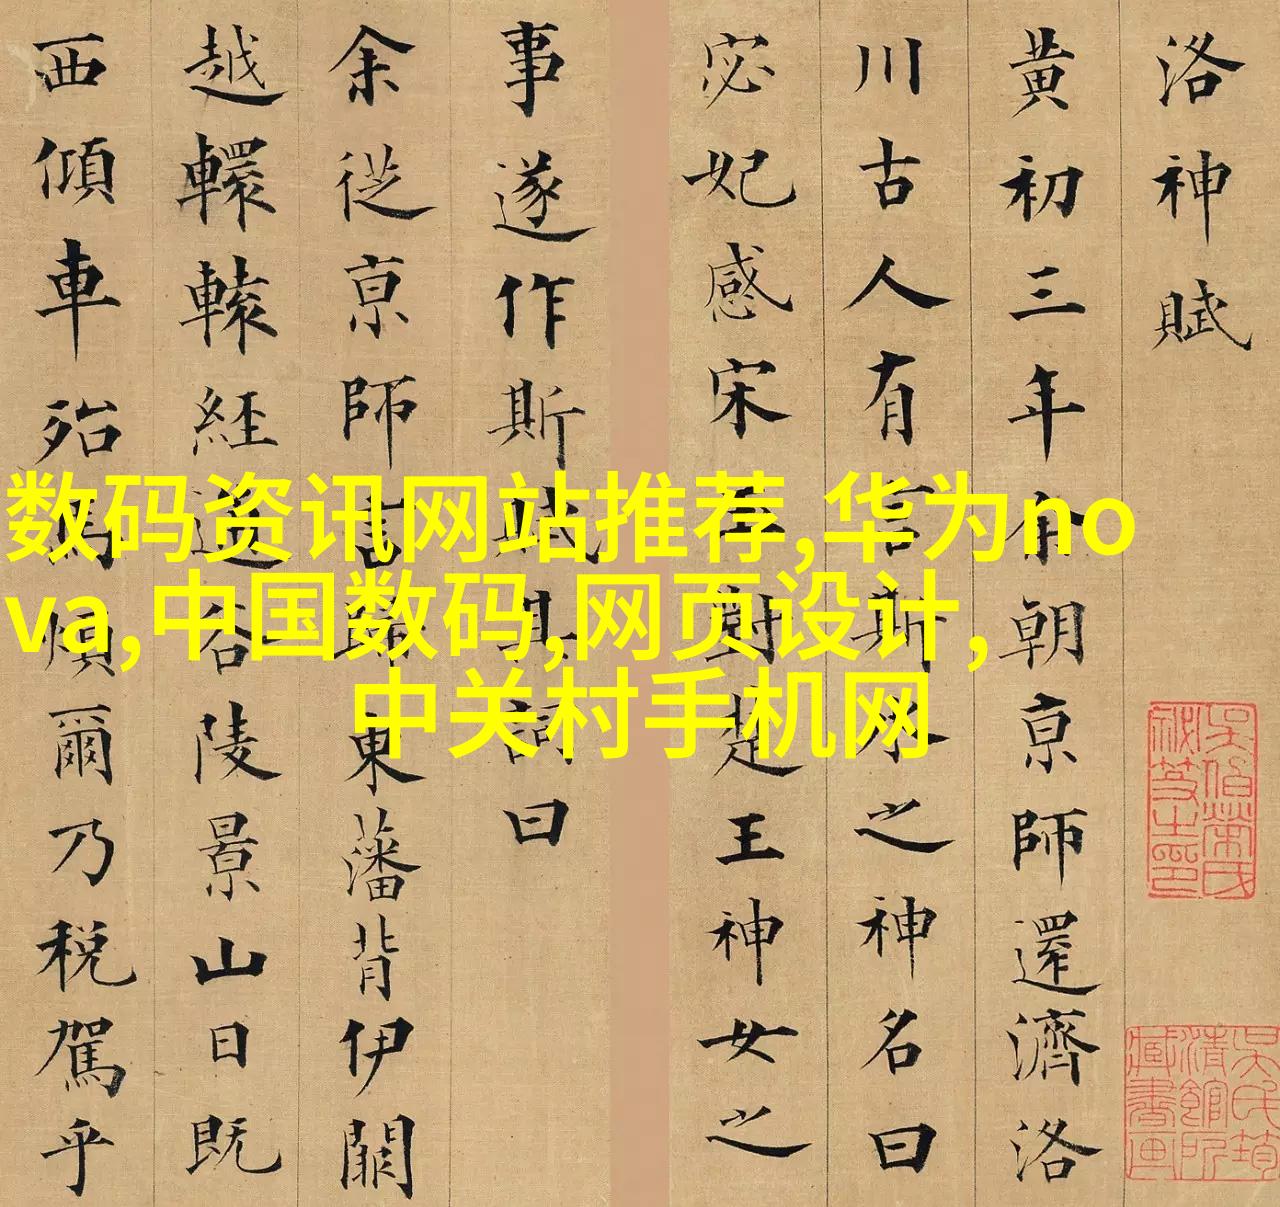 洛神賦
黄初三年余朝京師還濟洛
川古人有言斯水之神名曰
宓妃感宋玉對楚王神女之
事遂作斯賦其詞曰
余從京師言歸東藩背伊闕
越轘轅經通谷陵景山日既
西傾車殆馬煩爾乃稅駕乎
数码资讯网站推荐,华为no
va,中国数码,网页设计,
中关村手机网